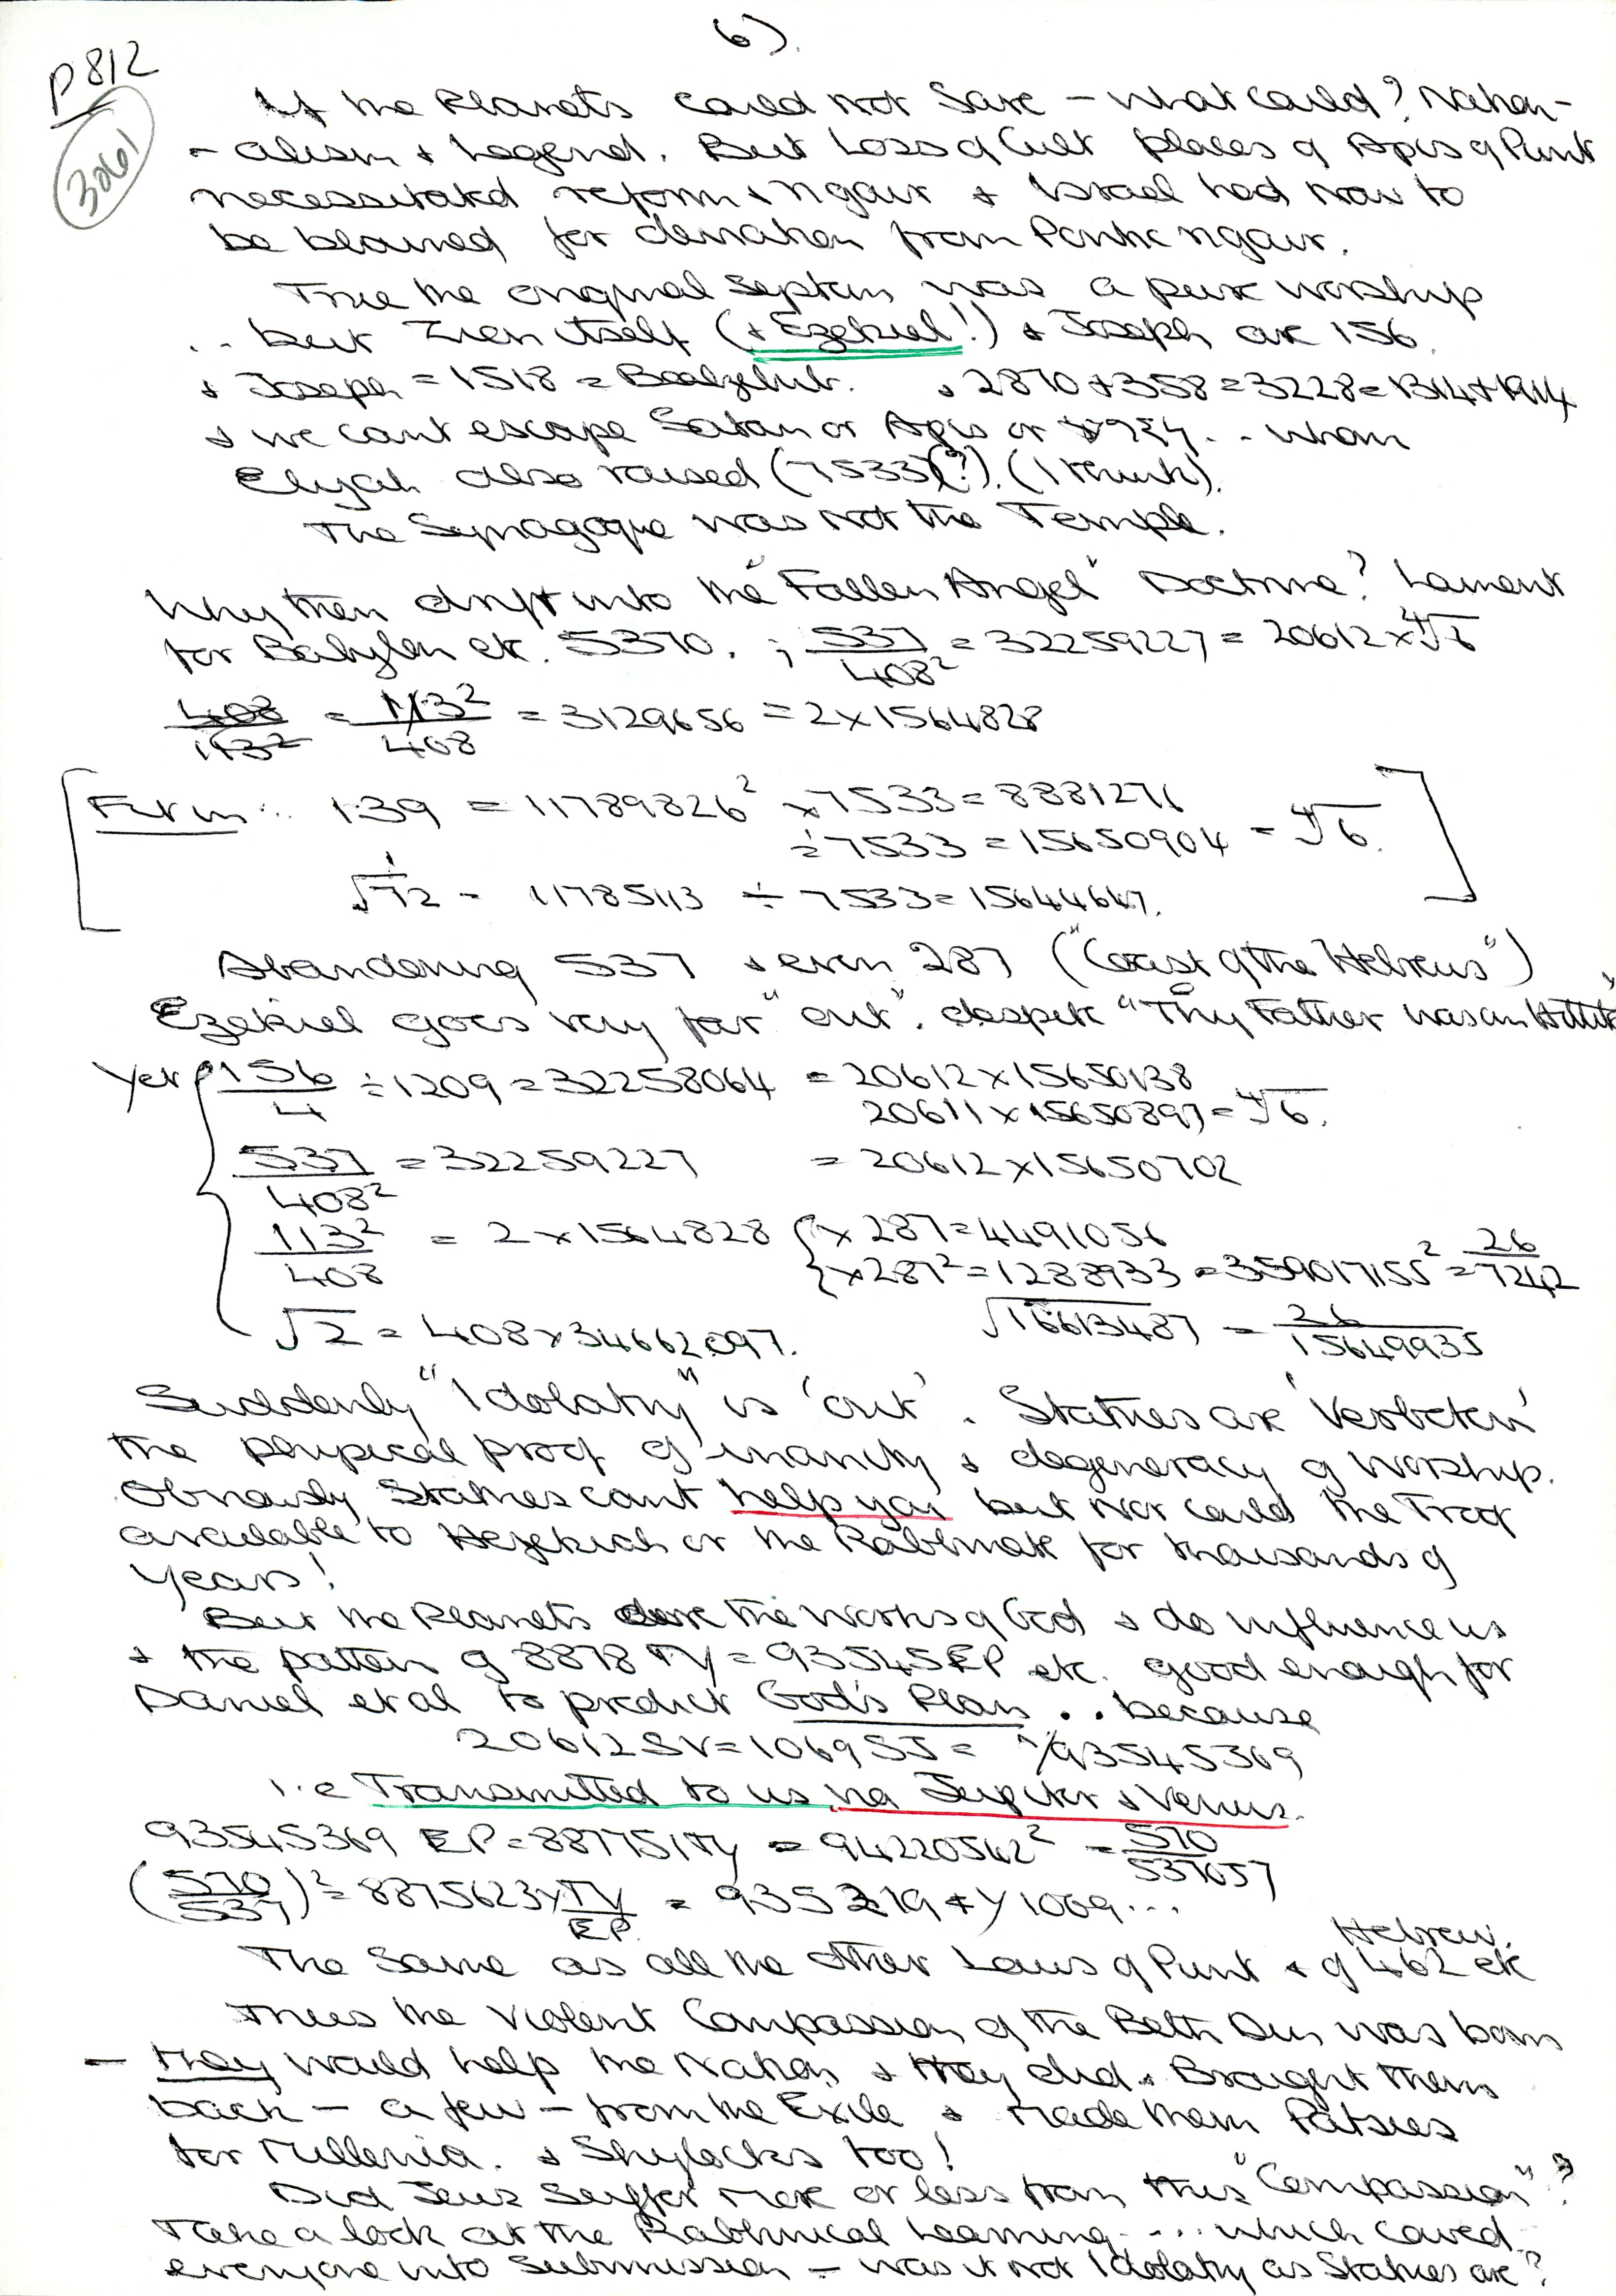 6).
P812
3061
If the Planets could not Save – what could? Nation-
- alism & Legend. But Loss of Cult places of Apis of Punt
necessitated reform & & Israel had now to
be blamed for deviation from
True the original was a pure worship
.. but Zion itself (& Ezekiel!) & Joseph are 156.
& Joseph = 1518 = Baalzebub. & 2870 + 358 = 3228 = 1314 + 1914
& we cant escape Satan or Apis or .. whom
Elijah also raised (7533)(?). (I think).
The Synagogue was not the Temple.
Why then drift into the "Fallen Angel" Doctrine? Lament
for Babylon etc. 5370. ; 537/408² = 32259227 = 20612 x ⁴√6
408/113² = 113²/408 = 3129656 = 2 x 1564828
[Furm: 1.39 = 11789826² x 7533 = 8881276
÷ 7533 = 15650904 = ⁴√6.
1/√72 = 11785113 ÷ 7533 = 15644647. ]
Abandoning 537 & even 287 ("Coast of the Hebrews")
Ezekiel goes very far "out". despite "Thy Father was an Hittite"
Yet { 156/4 ÷ 1209 = 32258064 = 20612 x 15650138
20611 x 15650897 = ⁴√6.
537/408² = 32259227 = 20612 x 15650702
113²/408 = 2 x 1564828 { x 287 = 4491056
x 287² = 1288933 = 359017155² = 26/7242
√2 = 408 x 34662097. √16613487 = 26/15649935
Suddenly "Idolatry" is 'out'. Statues are 'Verboten'
the physical proof of inanity & degeneracy of Worship.
Obviously Statues cant help you but nor could the Troof
available to Hezekiah or the Rabbinate for thousands of
Years!
But the Planets are the works of God & do influence us
& the pattern of 8878 TY = 93545 EP etc. good enough for
Daniel et al to predict God's Plan .. because
20612 SV = 1069 SJ = 1/93545369
i.e Transmitted to us via Jupiter & Venus.
93545369 EP = 887751 TY = 94220562² = 570/537057
(570/537)² = 8875623 x TY/EP = 935 219 + y 1069...
The Same as all the other Laws of Punt & of Hebrew. 462 etc
Thus the Violent Compassion of the Beth Din was born
– they would help the Nation & they did. & Brought them
back – a few – from the Exile & made them Patsies
for Millenia. & Shylocks too!
Did Jews Suffer more or less from this "Compassion"?
Take a look at the Rabbinical Learning .... which cowed
everyone into Submission – was it not Idolatry as Statues are?